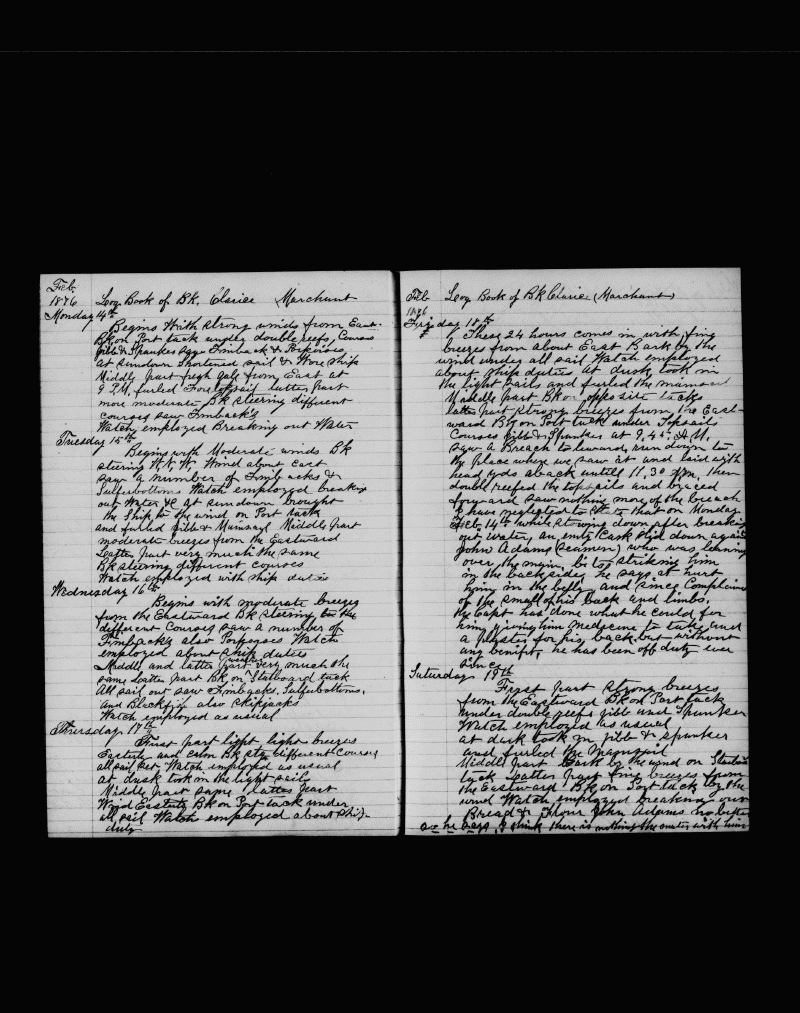 Feb.
1876 Log Book of BK. Clarice Merchant
Monday 14th
Begins With strong winds from East.
BK on Port tack under double reefs, Courses
jibb & Spanker saw Finback & Porpoises
at sundown Shortened sail & Wore ship
Middle part fresh gale from East at
9 P.M. furled Foretopsail latter part
more moderate BK steering different
courses saw Finbacks
Watch employed Breaking out Water
Tuesday 15th
Begins with Moderate winds BK
steering W.N.W. Wind about East
saw a number of Finbacks &
Sulferbottoms Watch employed breaking
out Water &c at sundown brought
the Ship to the wind on Port tack
and furled jibb & Mainsail Middle part
moderate breezes from the Eastward
Latter part very much the same
BK steering different courses
Watch employed with ship duties
Wednesday 16th
Begins with moderate breezes
from the Eastward BK steering to the
different Courses saw a number of
Finbacks also Porpoises Watch
employed about ship duties
Middle and latter part very much the
same Latter part BK on Starboard tack
All sail out saw Finbacks, Sulferbottoms,
and Blackfish also skipjacks
Watch employed as usual
Thursday 17th
First part light light breezes
Easterly and calm BK stg different Courses
all sail set Watch employed as usual
at dusk took in the light sails
Middle part same latter part
Wind Easterly BK on Port tack under
all sail Watch employed about ship-
duty
Feb
1876 Log Book of BK Clarice (Merchant)
Friday 18th
These 24 hours comes in with fine
breezes from about East Bark by the
wind under all sail Watch employed
about ship duties At dusk took in
the light sails and furled the mainsail
Middle part BK on opposite tacks
latter part strong breezes from the East-
ward BK on Port tack under Topsails
Courses jibb & Spanker at 9,45, A.M.
saw a Breach to leward, run down to
the place where we saw it and laid with
head yds aback untill 11,30 A.M. then
double reefed the topsails and braced
forward saw nothing more of the breach
I have neglected to state that on Monday
Feb. 14th while stowing down after breaking
out water, an emty Cask slid down against
John Adams (Seamen) who was leaning
over the main, striking him
in the backside, he says at hurt
him in the belly and since Complains
of the small of his back and limbs,
the Capt has done what he could for
him giving him medecine to take and
a plaster for his back, but without
any benifit, he has been off duty ever
since
Saturday 19th
First part strong breezes
from the Eastward BK on Port tack
under double reefs jibb and Spanker
Watch employed as usual
at dark took in jibb & spanker
and furled the Mainsail
Middle part Bark by the wind on Starboard
tack Latter part fine breezes from
the Eastward BK on Port tack by the
wind Watch employed breaking out
Bread & Flour John Adams no better
so he says, I think there is nothing the matter with him